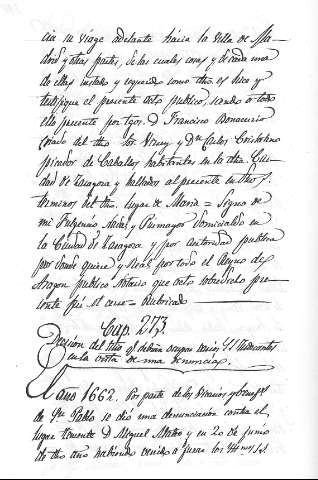 cia su viage adelante hácia la Villa de Ma-
drid y otras partes, de las cuales cosas y de cada una
de ellas instado y requerido como dho. es hice y
testifique el presente acto publico, siendo a todo
ello presente por tgos. D. Francisco Bonacurio
criado del dho Sor. Virrey y Dn. Carlos Cristolano
picador de Caballos habitantes en la dha. Ciu-
dad de Zaragoza y hallados al presente en dhos
terminos del dho. lugar de Maria = Signo de
mi Fulgencio, domiciliado en
la Ciudad de Zaragoza, y por autoridad publica
por donde quiere y Real por todo el Reyno de
Aragon publico Notario que acto sobredicho pre-
sente fui et cerre = Rubricado
Cap. 273.
en la de una denuncia.
El año 1662. Por parte de los Vicarios y
de Sn. Pablo se dió una denunciacion contra el
lugar teniente D. Miguel y en 20 de junio
de dho año habiendo venido a jurar los